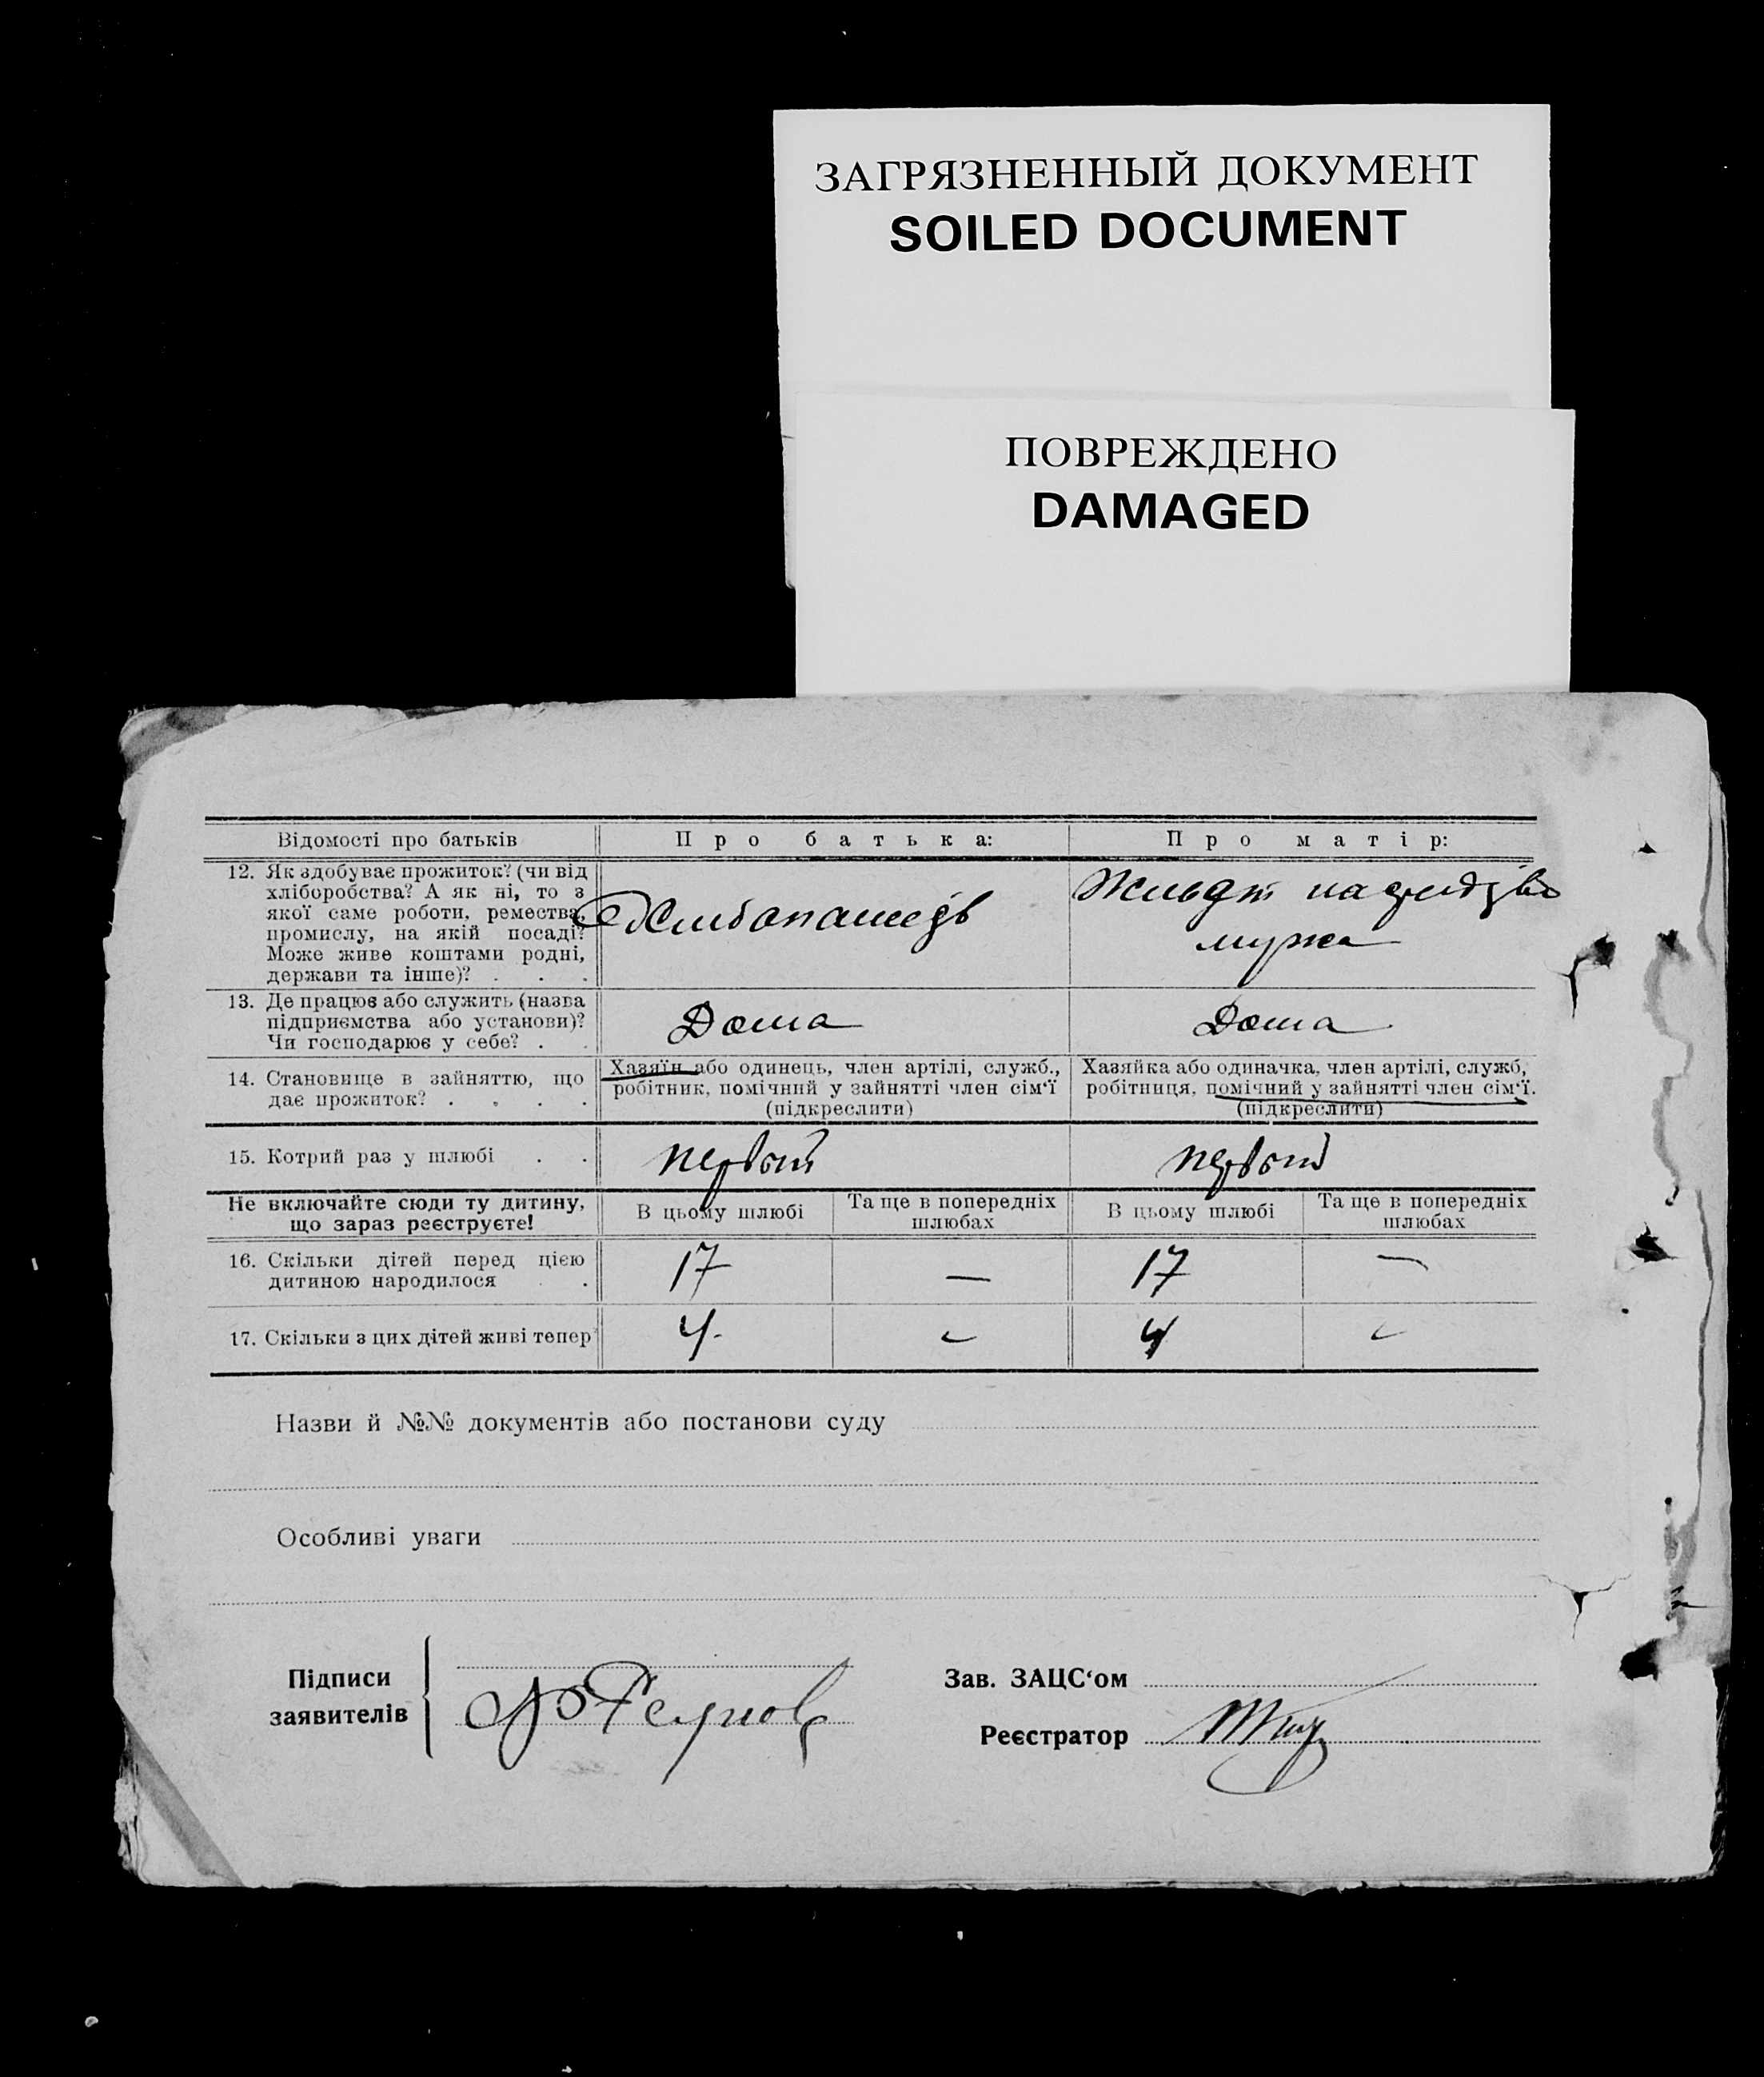 ЗАГРЯЗНЕННЫЙ ДОКУМЕНТ
SOILED DOCUMENT
ПОВРЕЖДЕНО
DAMAGED
Відомості про батьків
Про батька:
Про матір:
12. Як здобуває прожиток? (чи від
хліборобства? А як ні, то з
якої саме роботи, ремества,
промислу, на якій посаді?
Може живе коштами родні,
держави та інше)? . . .
мужа
13. Де працює або служить (назва
підприємства або установи)?
Чи господарює у себе? . .
Дома
Дома
14. Становище в зайняттю, що
дає прожиток? . . . .
Хазяїн або одинець, член артілі, служб.,
робітник, помічний у зайнятті член сім‘ї
(підкреслити)
Хазяйка або одиначка, член артілі, служб,
робітниця, помічний у зайнятті член сім‘ї.
(підкреслити)
15. Котрий раз у шлюбі . .
первый
первый
Не включайте сюди ту дитину,
що зараз реєструєте!
В цьому шлюбі
Та ще в попередніх
шлюбах
В цьому шлюбі
Та ще в попередніх
шлюбах
16. Скільки дітей перед цією
дитиною народилося . .
17
—
17
—
17. Скільки з цих дітей живі тепер
4
4
Назви й №№ документів або постанови суду
Особливі уваги
Підписи
заявителів
Зав. ЗАЦС‘ом
Реєстратор